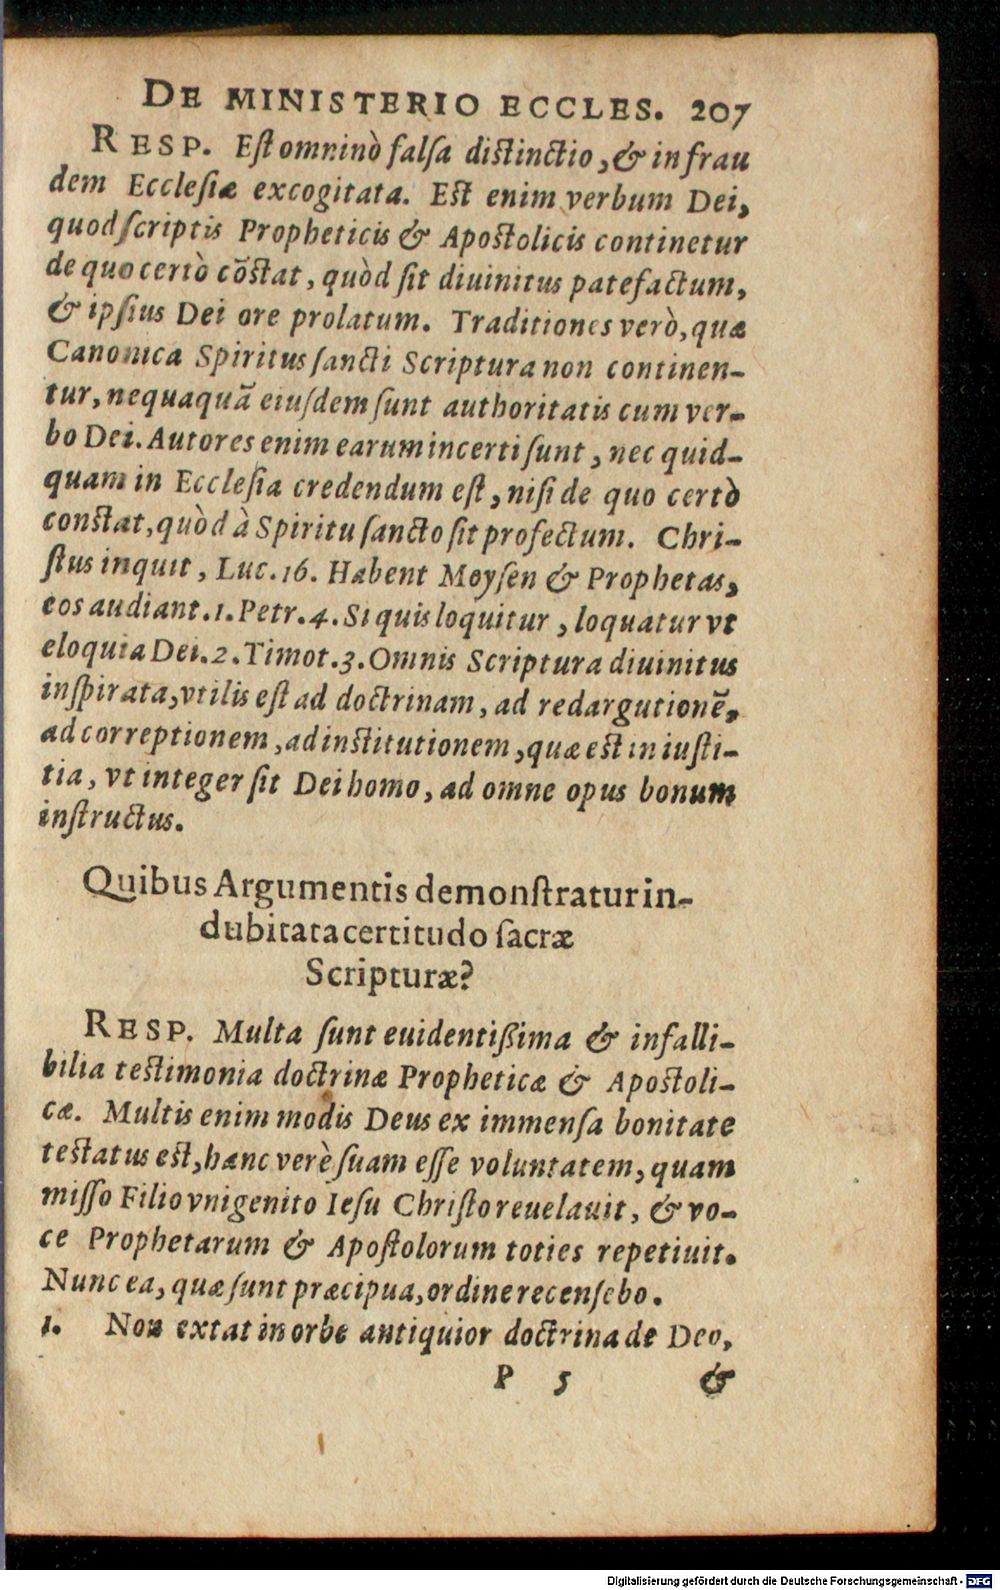 DE MINISTERIO ECCLES. 207
RESP. Eſt omninò falſa diſtinctio, & in frau
dem Eccleſiæ excogitata. Eſt enim verbum Dei,
quod ſcriptis Propheticis & Apoſtolicis continetur
de quo certò cōſtat, quòd ſit diuinitus patefactum,
& ipſius Dei ore prolatum. Traditiones verò, quæ
Canonica Spiritus ſancti Scriptura non continen-
tur, nequaquā eiuſdem ſunt authoritatis cum ver-
bo Dei. Autores enim earum incerti ſunt, nec quid-
quam in Eccleſia credendum eſt, niſi de quo certò
conſtat, quòd à Spiritu ſancto ſit profectum. Chri-
ſtus inquit, Luc. 16. Habent Moyſen & Prophetas,
eos audiant. 1. Petr. 4. Si quis loquitur, loquatur vt
eloquia Dei. 2. Timot. 3. Omnis Scriptura diuinitus
inſpirata, vtilis eſt ad doctrinam, ad redargutionē,
ad correptionem, ad inſtitutionem, quæ eſt in iuſti-
tia, vt integer ſit Dei homo, ad omne opus bonum
inſtructus.
Quibus Argumentis demonſtratur in-
dubitata certitudo ſacræ
Scripturæ?
RESP. Multa ſunt euidentißima & infalli-
bilia teſtimonia doctrinæ Propheticæ & Apoſtoli-
cæ. Multis enim modis Deus ex immenſa bonitate
teſtatus eſt, hanc verè ſuam eſſe voluntatem, quam
miſſo Filio vnigenito Ieſu Chriſto reuelauit, & vo-
ce Prophetarum & Apoſtolorum toties repetiuit.
Nunc ea, quæ ſunt præcipua, ordine recenſebo.
1. Non extat in orbe antiquior doctrina de Deo,
P 5 &
Digitalisierung gefördert durch die Deutsche Forschungsgemeinschaft - DFG